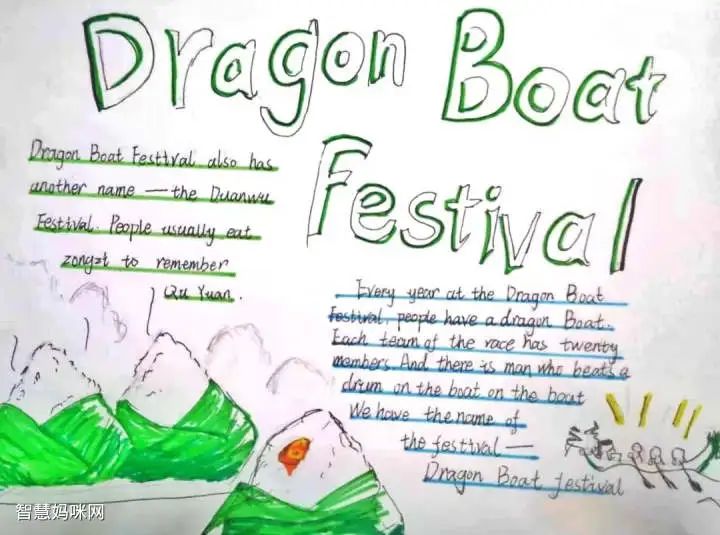 Dragon Boat
Festival
Dragon Boat Festival also has
another name — the Duanwu
Festival. People usually eat
zongzi to remember
Qu Yuan.
Every year at the Dragon Boat
Festival, people have a dragon Boat.
Each team of the race has twenty
members. And there is man who beats a
drum on the boat on the boat
We have the name of
the festival —
Dragon Boat festival
智慧妈咪网